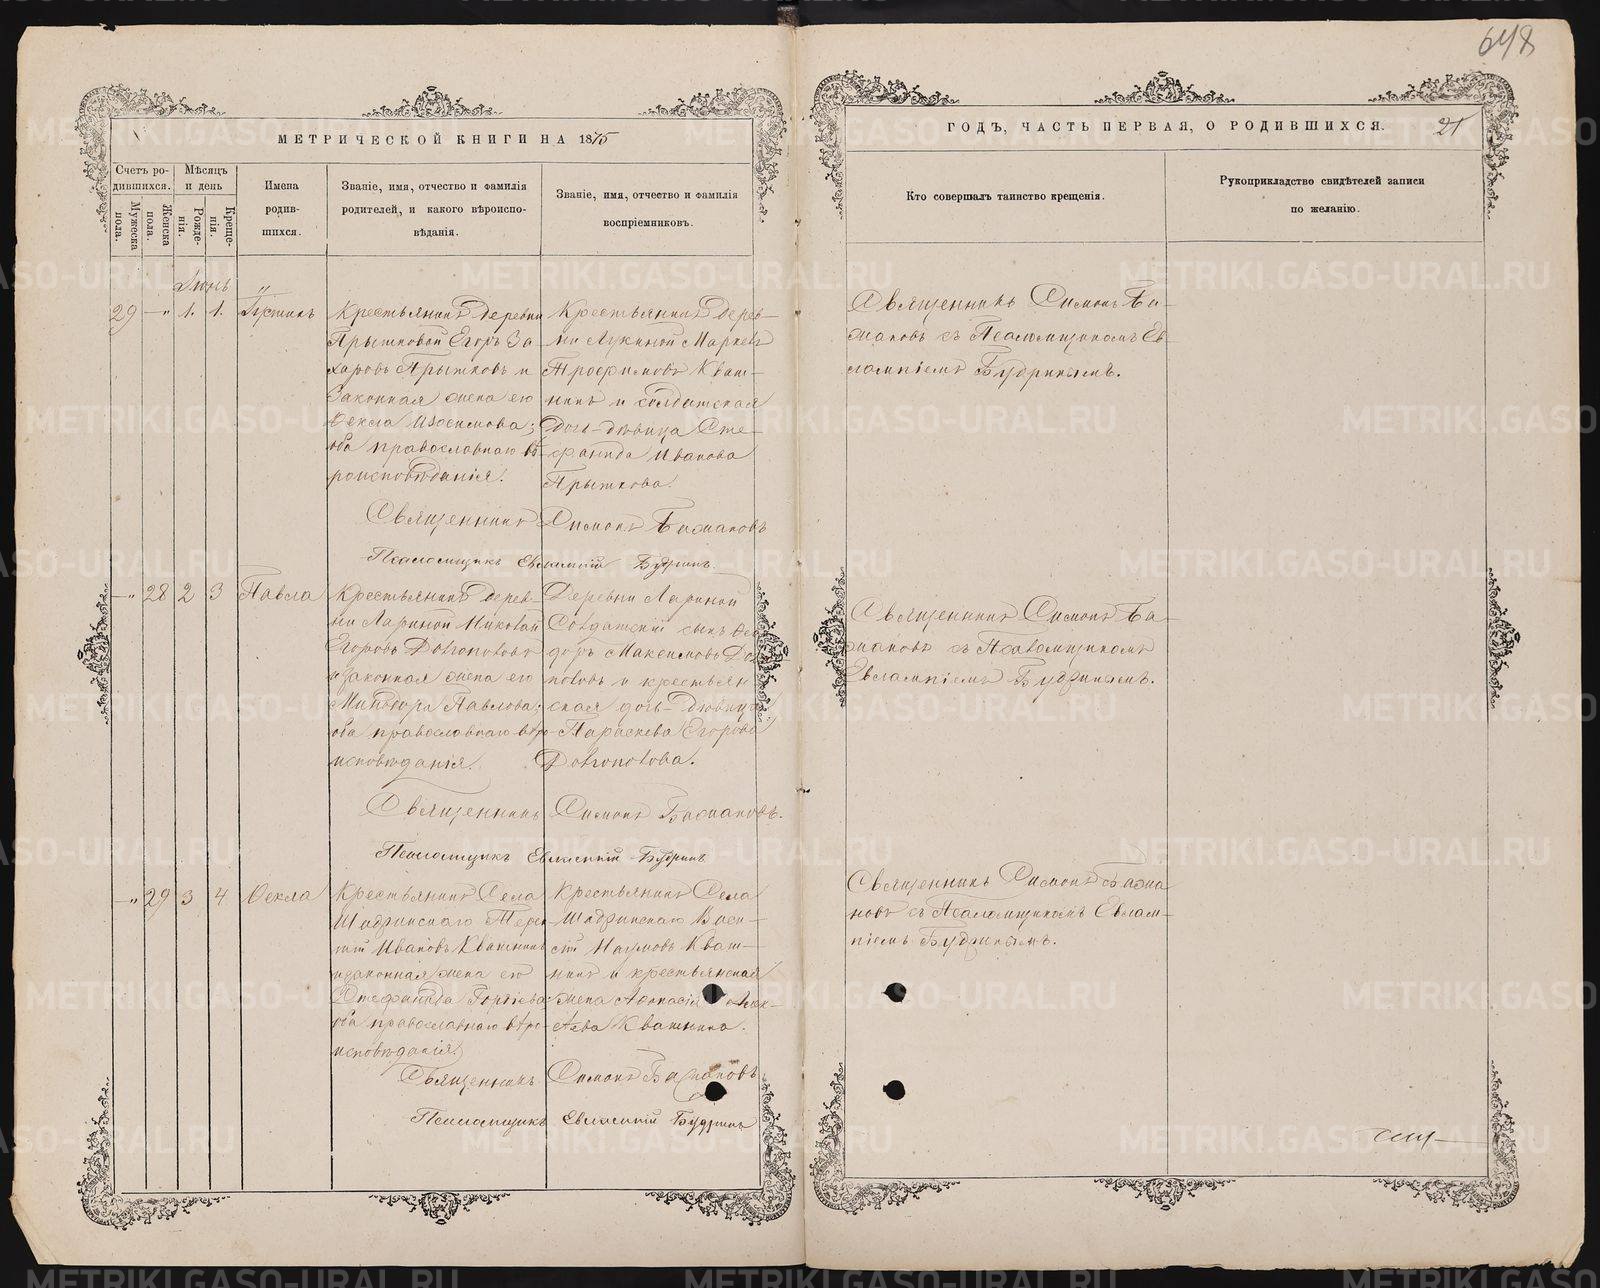 648
МЕТРИЧЕСКОЙ КНИГИ НА 1875
ГОДЪ, ЧАСТЬ ПЕРВАЯ, О РОДИВШИХСЯ.
21
Счетъ ро-
дившихся.
Мѣсяцъ
и день
Мужеска
пола.
Женска
пола.
Рожде-
нія.
Креще-
нія.
Имена
родив-
шихся.
Званіе, имя, отчество и фамилія
родителей, и какого вѣроиспо-
вѣданія.
Званіе, имя, отчество и фамилія
воспріемниковъ.
Кто совершалъ таинство крещенія.
Рукоприкладство свидѣтелей записи
по желанію.
Іюнь
29 — " 1. 1. Іустинъ
Крестьянинъ деревни
Прытковой Егоръ За
харовъ Прытковъ и
Законная жена его
Ѳекла Изосимова;
оба православнаго вѣ-
роисповѣданія.
Крестьянинъ дерев-
ни Лукиной Маркелъ
Трофимовъ Кваш-
нинъ и солдатская
дочь-дѣвица Сте-
фанида Иванова
Прыткова.
Священникъ Симонъ Ба-
жановъ съ Псаломщикомъ Ев-
лампіемъ Будринымъ.
Священникъ Симонъ Бажановъ
Псаломщикъ Евлампій Будринъ.
— " 28 2 3 Павла
Крестьянинъ дерев-
ни Лариной Николай
Егоровъ Долгополовъ
и законная жена его
Минодора Павлова;
оба православнаго вѣро-
исповѣданія.
Деревни Лариной
Солдатскій сынъ Ѳео
доръ Максимовъ Долго
половъ и крестьян
ская дочь-дѣвица
Параскева Егорова
Долгополова.
Священникъ Симонъ Ба-
жановъ съ Псаломщикомъ
Евлампіемъ Будринымъ.
Священникъ Симонъ Бажановъ.
Псаломщикъ Евлампій Будринъ
— " 29 3 4 Ѳекла
Крестьянинъ Села
Шадринскаго
Ивановъ Квашнинъ
и законная жена его
Стефанида Георгіева
оба православнаго вѣро-
исповѣданія.
Крестьянинъ Села
Шадринскаго Васи-
лій Наумовъ Кваш-
нинъ и крестьянская
жена
Квашнина.
Священникъ Симонъ Бажа
новъ съ Псаломщикомъ Евлам-
піемъ Будринымъ.
Священникъ Симонъ Бажановъ
Псаломщикъ Евлампій Будринъ
METRIKI.GASO-URAL.RU